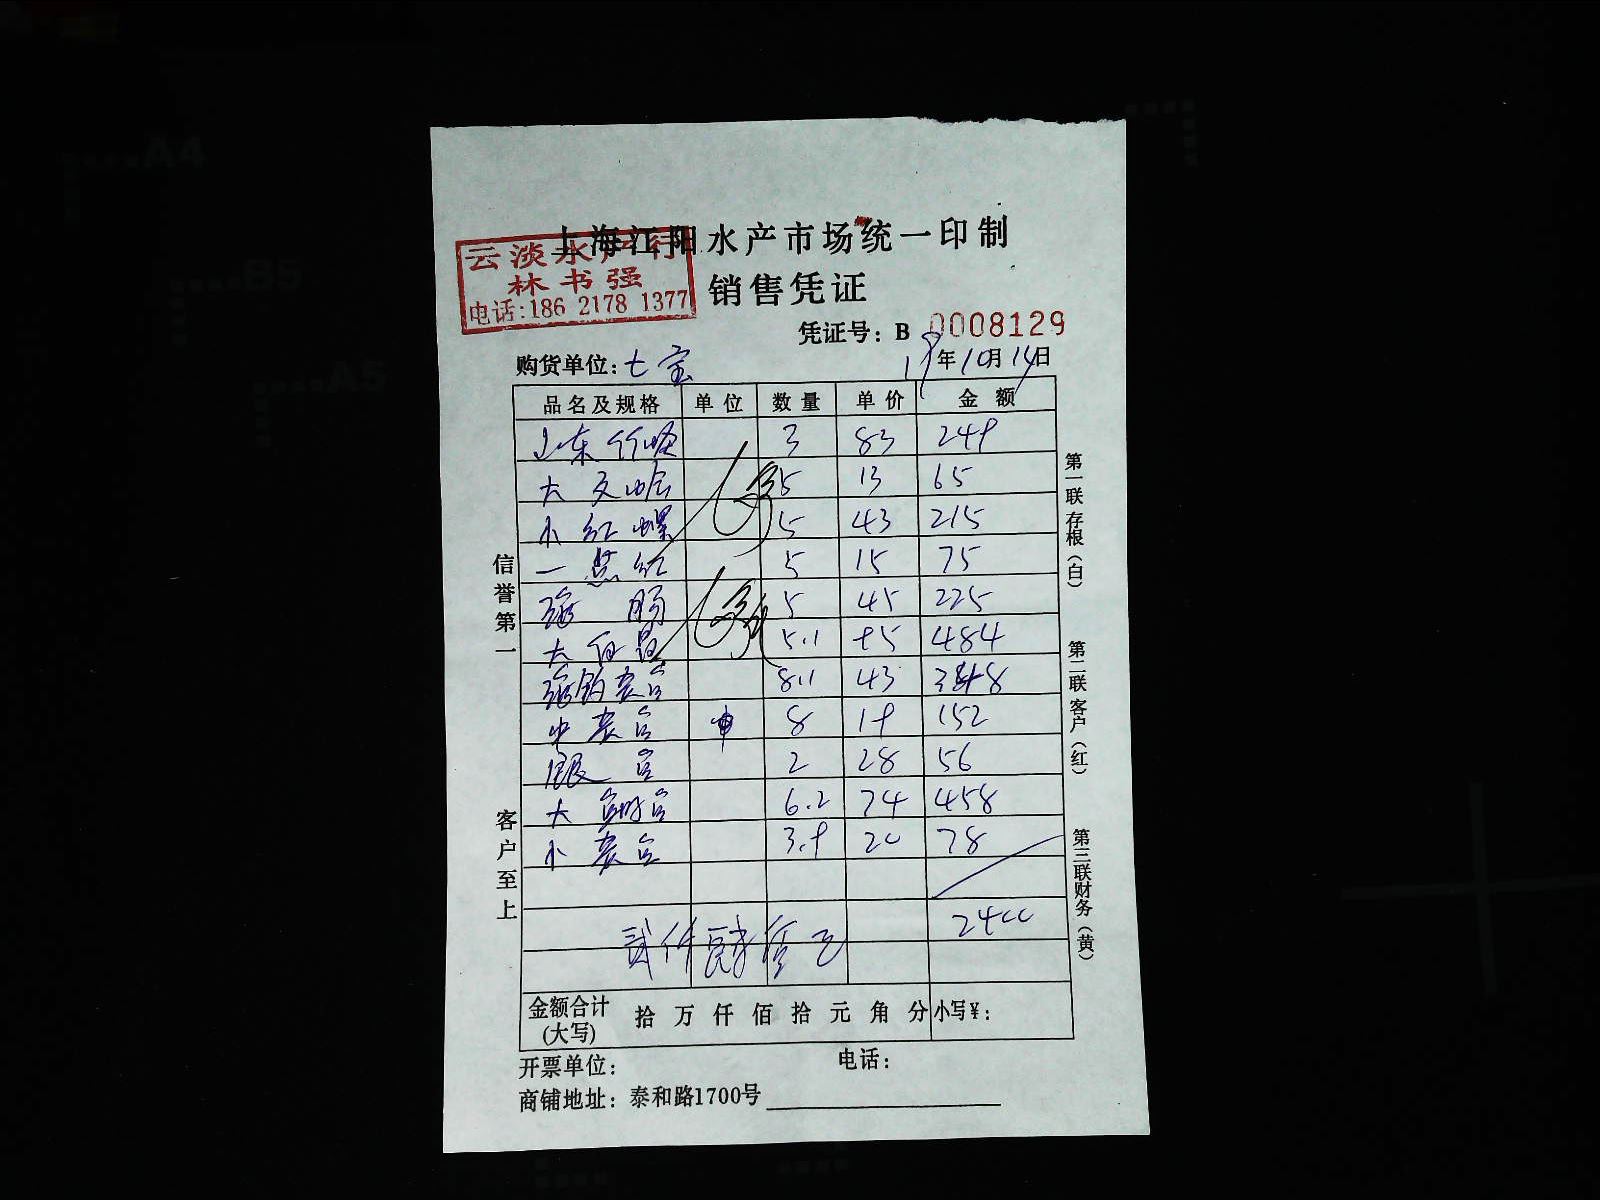 上海江阳水产市场统一印制
云淡水产行
林书强
电话:186 2178 1377
销售凭证
凭证号: B 0008129
购货单位: 七宝 19年10月14日
品名及规格 单位 数量 单价 金额
山东竹蛏 3 83 249
大文蛤 5 13 65
小红螺 5 43 215
一点红 5 15 75
海肠 5 45 225
大白 5.1 95 484
8.1 43 348
中 8 19 152
银 2 28 56
大 6.2 74 458
小 3.9 20 78
2400
贰仟肆佰元
金额合计
(大写) 拾 万 仟 佰 拾 元 角 分 小写¥:
开票单位: 电话:
商铺地址: 泰和路1700号
信誉第一
客户至上
第一联 存根(白)
第二联 客户(红)
第三联 财务(黄)
A4
B5
A5